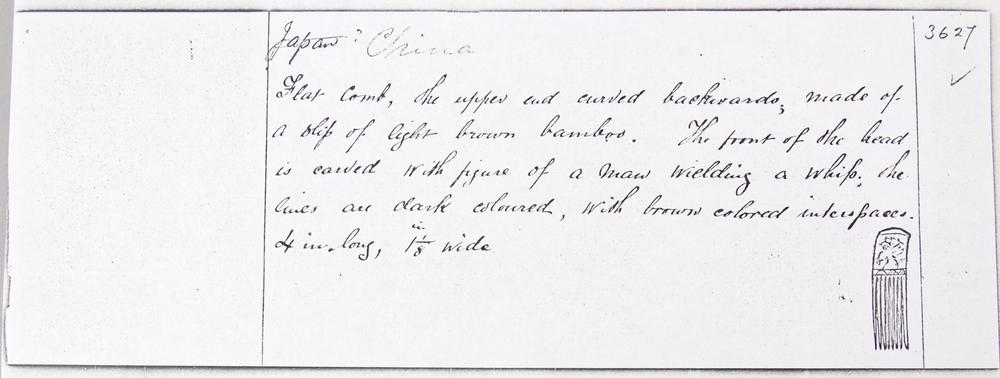 Japan? China
3627
Flat comb, the upper end curved backwards; made of
a slip of light brown bamboo. The front of the head
is carved with figure of a man wielding a whip; the
lines are dark coloured, with brown colored interspaces.
4 in. long, 1 1/8 in wide